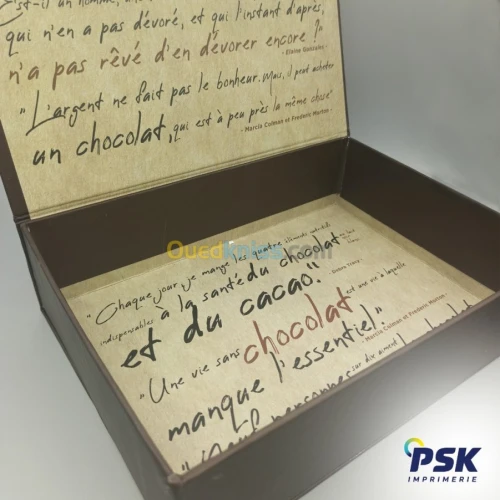 est-il un homme, une
qui n'en a pas dévoré, et qui l'instant d'après,
n'a pas rêvé d'en dévorer encore ?"
- Elaine Gonzalez -
"L'argent ne fait pas le bonheur. Mais, il peut acheter
un chocolat, qui est à peu près la même chose"
- Marcia Colman et Frederic Morton -
OuedKniss.com
"Chaque jour je mange les quatre éléments
indispensables à la santé du chocolat
et du cacao."
"Une vie sans chocolat est une vie à laquelle
manque l'essentiel."
- Marcia Colman et Frederic Morton -
"Neuf personnes sur dix aiment le chocolat
PSK
IMPRIMERIE